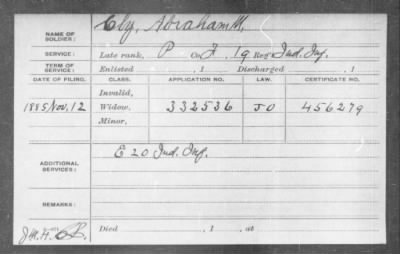 NAME OF SOLDIER: Cly, Abraham M.
SERVICE: Late rank, P Co. F, 19 Reg't Ind. Inf.
TERM OF SERVICE: Enlisted , 1 Discharged , 1
DATE OF FILING. CLASS. APPLICATION NO. LAW. CERTIFICATE NO.
Invalid,
1885 Nov. 12 Widow, 332536 JO 456279
Minor,
ADDITIONAL SERVICES: E 20 Ind. Inf.
REMARKS:
Died , 1 , at